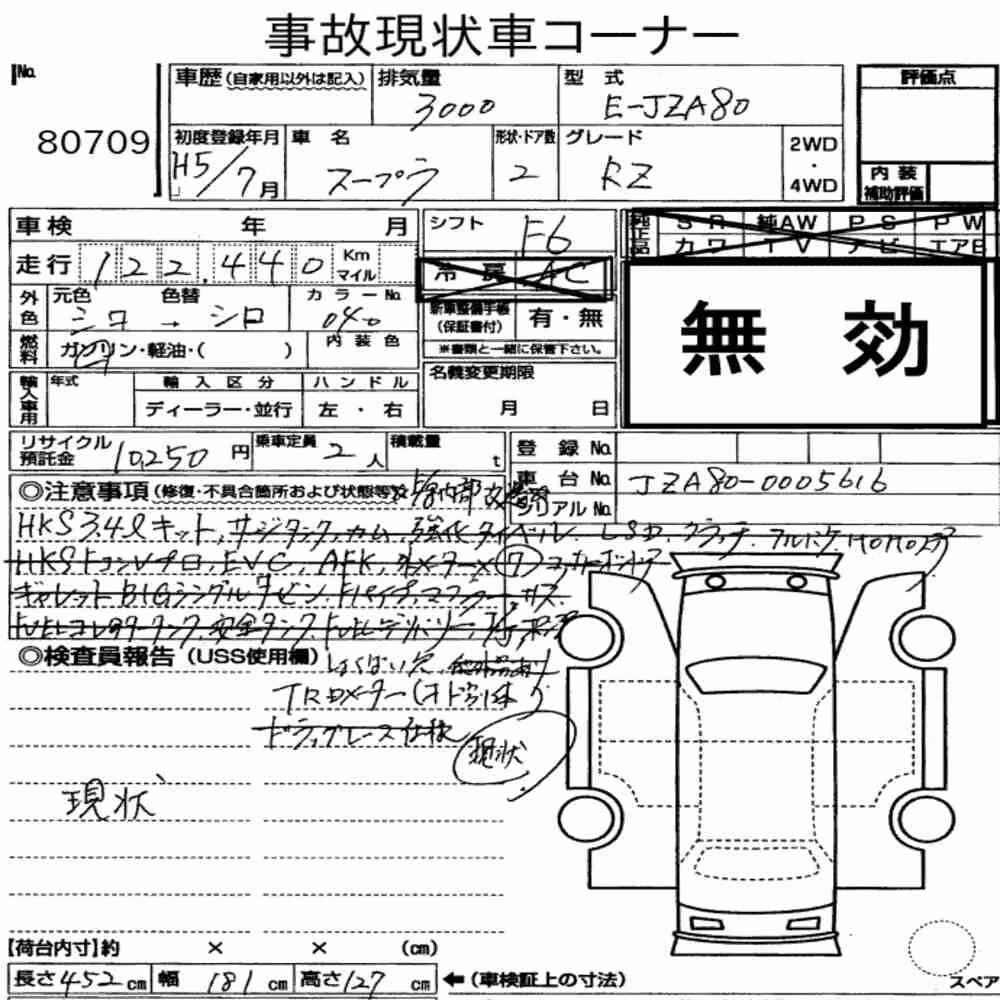 事故現状車コーナー
No. 80709
車歴 (自家用以外は記入) 排気量 3000 型式 E-JZA80
初度登録年月 H5/7月 車名 スープラ 形状・ドア数 2 グレード RZ 2WD・4WD
評価点
内装補助評価
車検 年 月 シフト F6
純正品 SR 純AW PS PW
カワ TV ナビ エアB
走行 122,440 Km マイル
冷房 AC
外色 元色 シロ → 色替 シロ カラーNo. 040
新車整備手帳(保証書付) 有・無
※書類と一緒に保管下さい。
無効
燃料 ガソリン・軽油・( ) 内装色
輸入車用 年式 輸入区分 ハンドル
ディーラー・並行 左・右
名義変更期限 月 日
リサイクル預託金 10,250円 乗車定員 2人 積載量 t
登録No.
車台No. JZA80-0005616
シリアルNo.
◎注意事項(修復・不具合箇所および状態等)
HKS3.4ℓキット, サージタンク, カム, 強化タイベル, LSD, クラッチ, MOMO
HKS FコンVプロ, EVC, AFK, メーター×⑦
ギャレットBIGシングルタービン, Fパイプ, マフラー
安全タンク
◎検査員報告(USS使用欄)
TRDメーター(オド
ドラッグレース仕様
現状
現状
【荷台内寸】約 × × (cm)
長さ452cm 幅181cm 高さ127cm ←(車検証上の寸法)
スペア